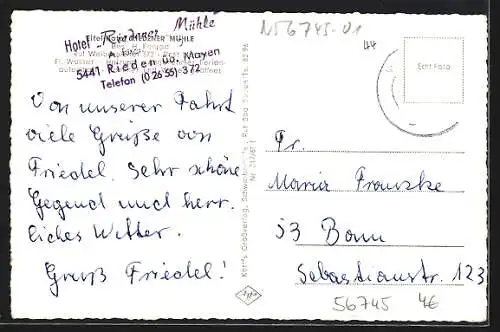 N56745-01
44
Hotel - Riedener Mühle
5441 Rieden üb. Mayen
Telefon (0 26 55) 3 72
Echt Foto
Von unserer Fahrt
viele Grüße von
Friedel. Sehr schöne
Gegend und herr-
liches Wetter.
Gruß Friedel!
Fr.
Maria Franzke
53 Bonn
Sebastianstr. 123
56745 4€